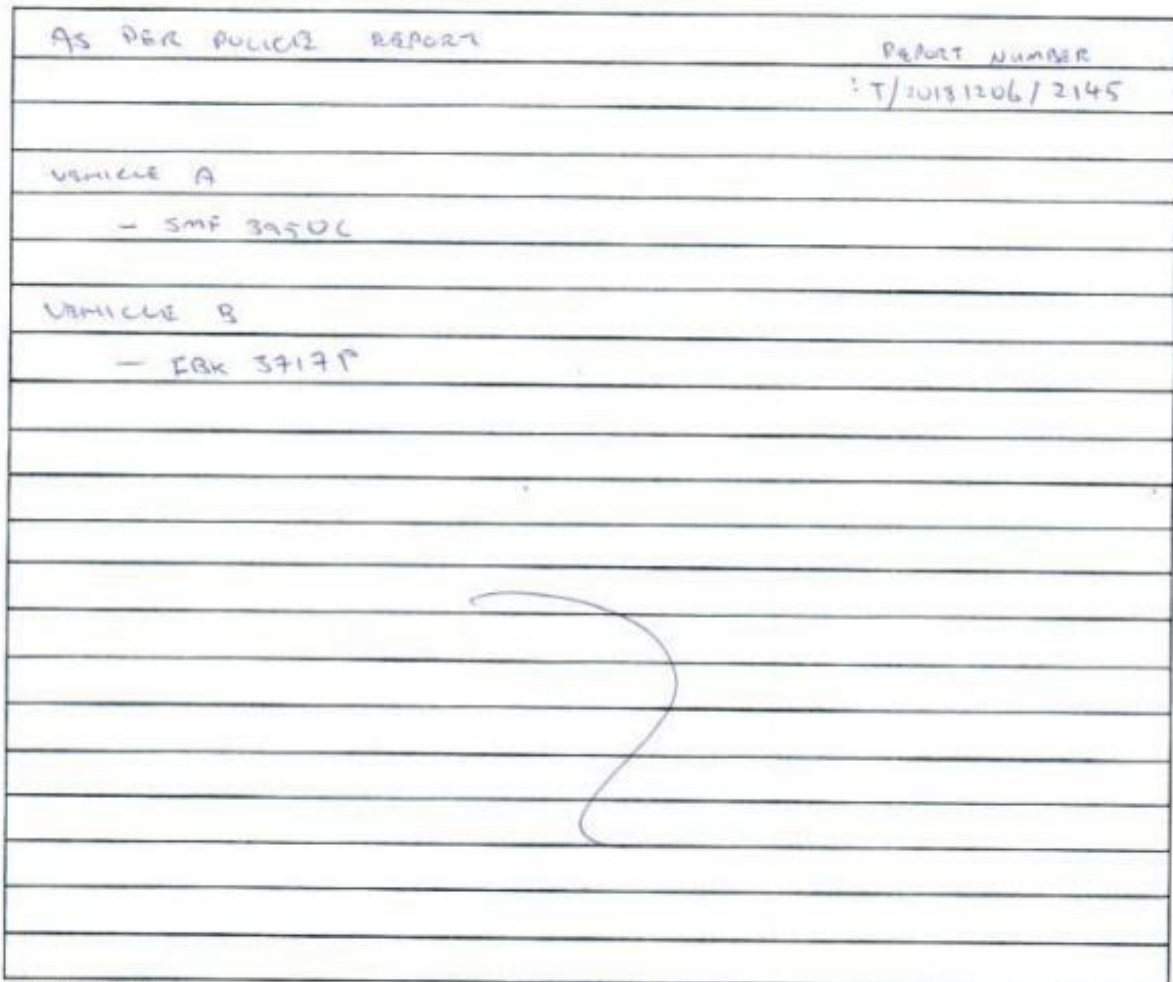 AS PER POLICE REPORT
REPORT NUMBER
: T/20181206/2145
VEHICLE A
- SMF 3950C
VEHICLE B
- FBK 3717P